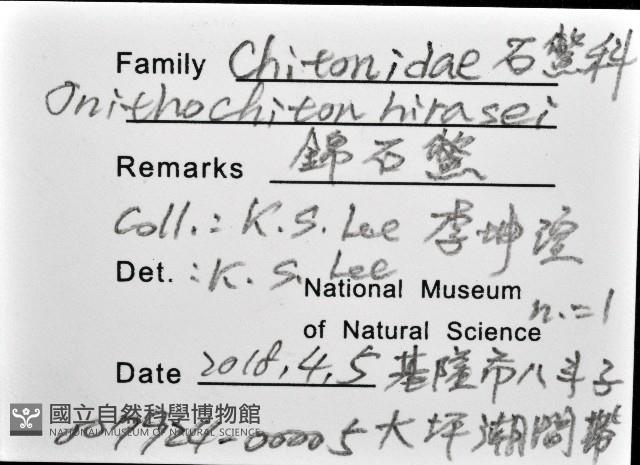 Family Chitonidae 石鱉科
Onithochiton hirasei
Remarks 錦石鱉
Coll.: K.S. Lee 李坤瑄
Det.: K. S. Lee
National Museum
n.=1
of Natural Science
Date 2018,4,5 基隆市八斗子
大坪潮間帶
國立自然科學博物館
NATIONAL MUSEUM OF NATURAL SCIENCE